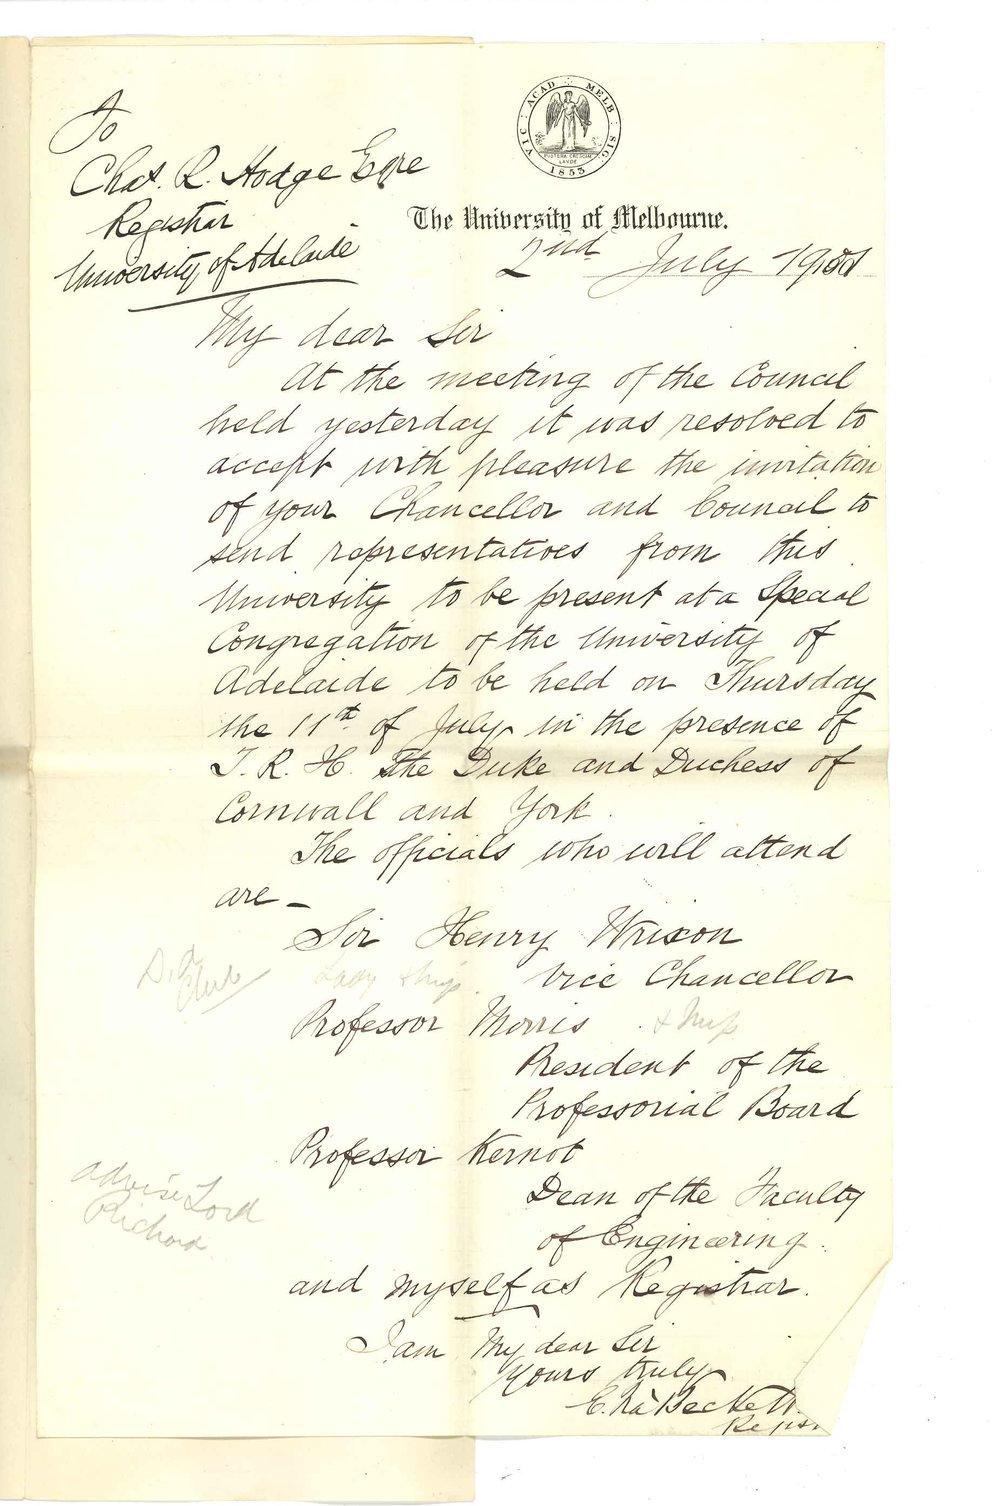 To
Chas. R. Hodge Esqre
Registrar
University of Adelaide
VIC : ACAD : MELB : SIG
POSTERA CRESCAM
LAUDE
1853
The University of Melbourne.
2nd July 1901
My dear Sir
At the meeting of the Council
held yesterday it was resolved to
accept with pleasure the invitation
of your Chancellor and Council to
send representatives from this
University to be present at a Special
Congregation of the University of
Adelaide to be held on Thursday
the 11th. of July in the presence of
T. R. H. The Duke and Duchess of
Cornwall and York.
The officials who will attend
are –
Sir Henry Wrixon
Vice Chancellor
Lady &
Club
Professor Morris &
President of the
Professorial Board
Professor Kernot
Dean of the Faculty
of Engineering.
advise Lord
Richard
and myself as Registrar.
I am My dear Sir
Yours truly
E. F. à Beckett